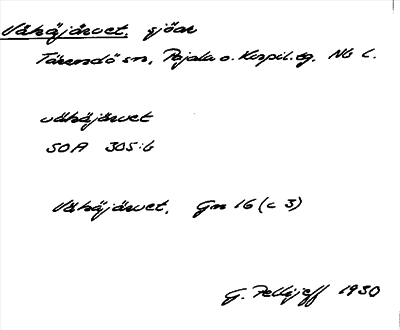 Vähäjärvet. sjöar
Tärendö sn, Pajala o. Korpil. tg. Nb l.
vähäjärvet
SOA 305:6
Vähäjärvet. Gn 16 (c 3)
G. Pellijeff 1930